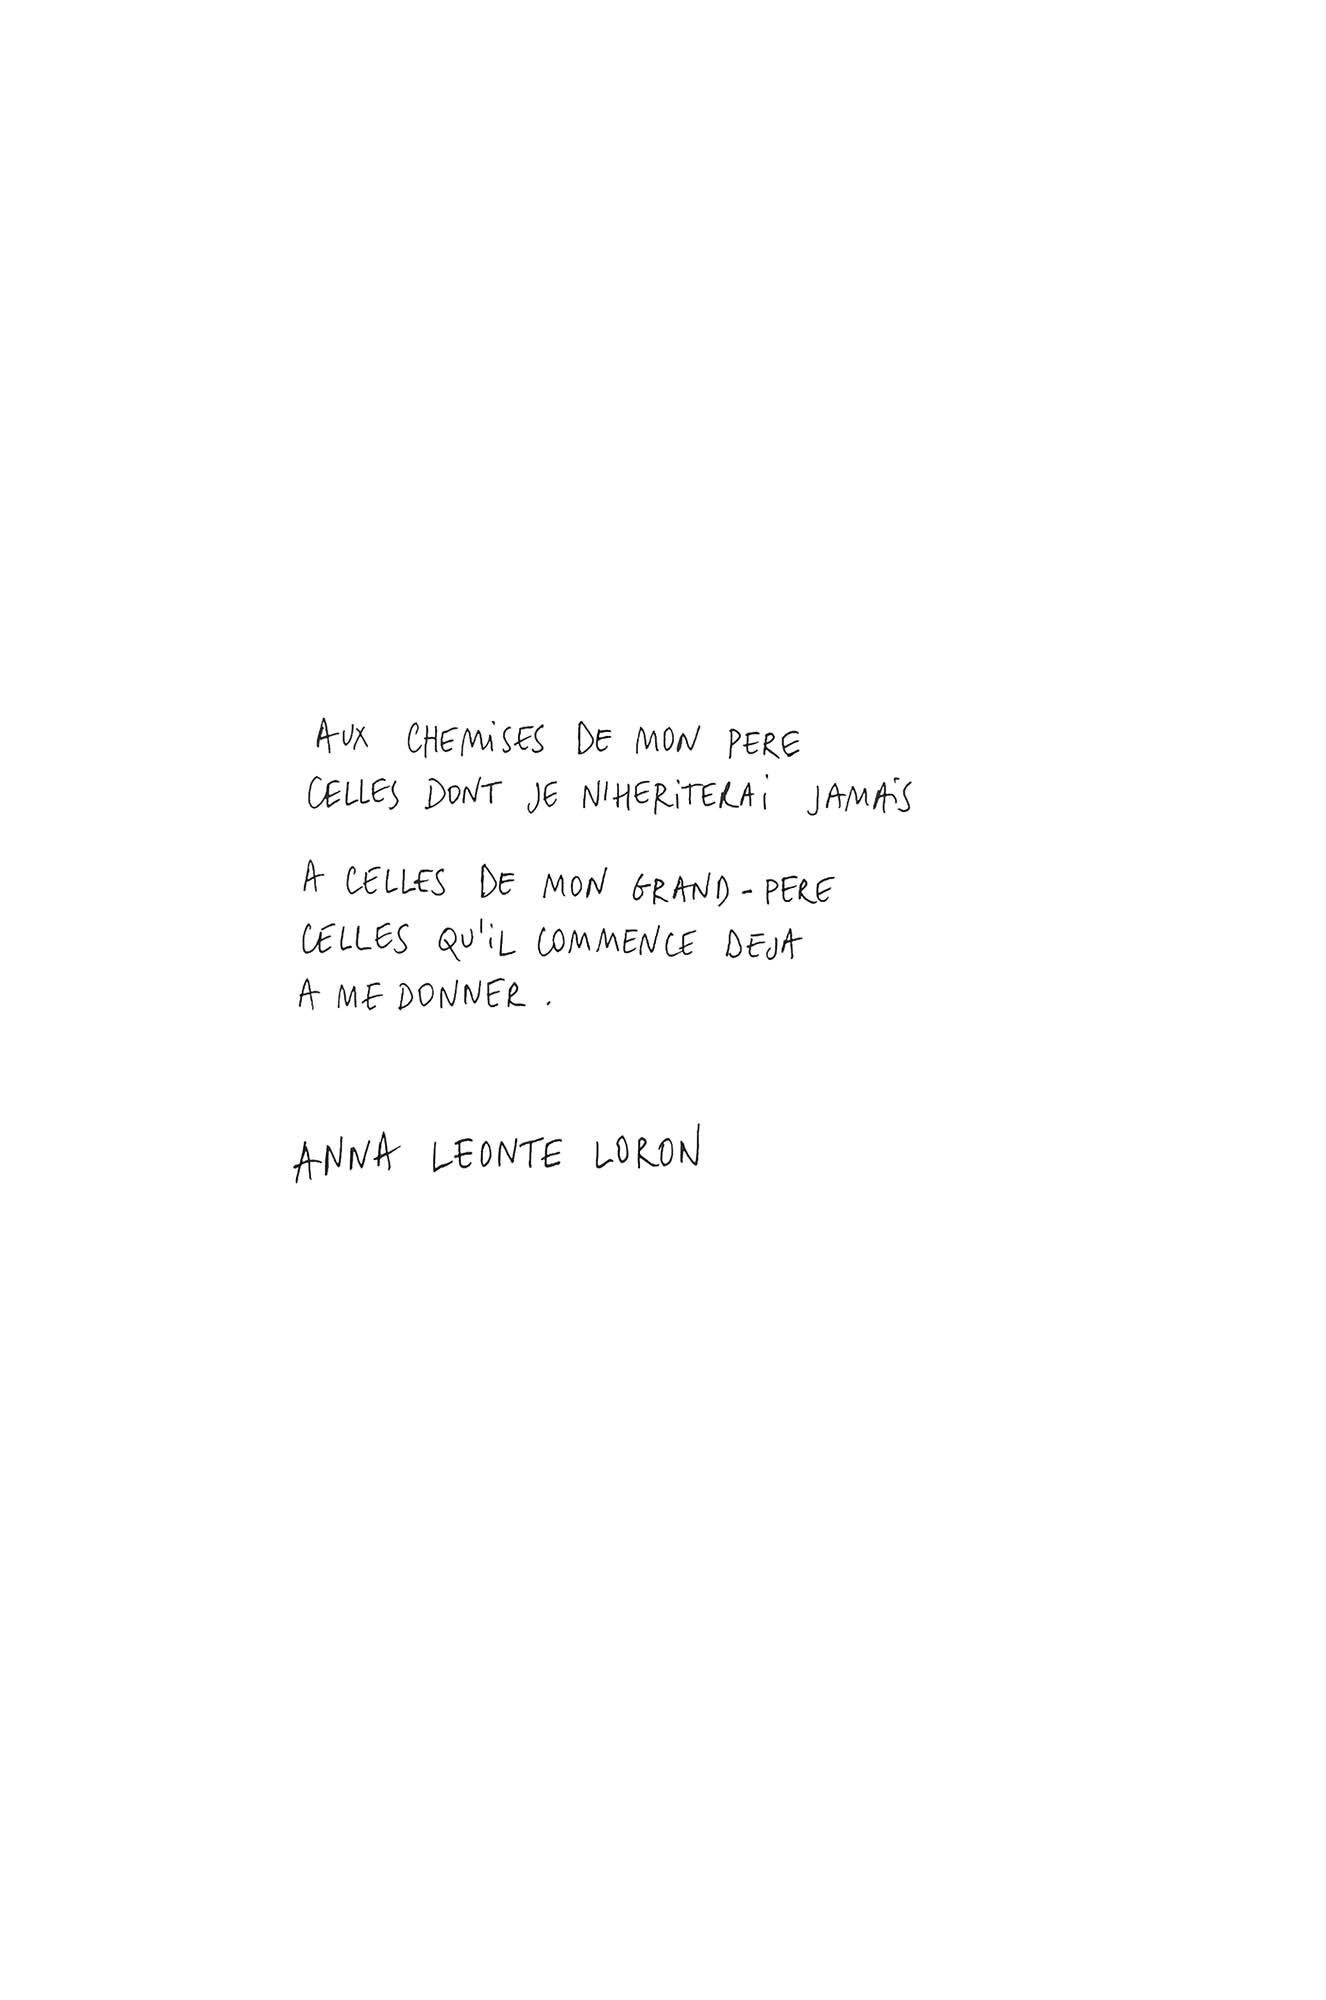 AUX CHEMiSES DE MON PERE
CELLES DONT JE N'HERiTERAi JAMAiS
A CELLES DE MON GRAND-PERE
CELLES QU'iL COMMENCE DEJA
A ME DONNER.
ANNA LEONTE LORON